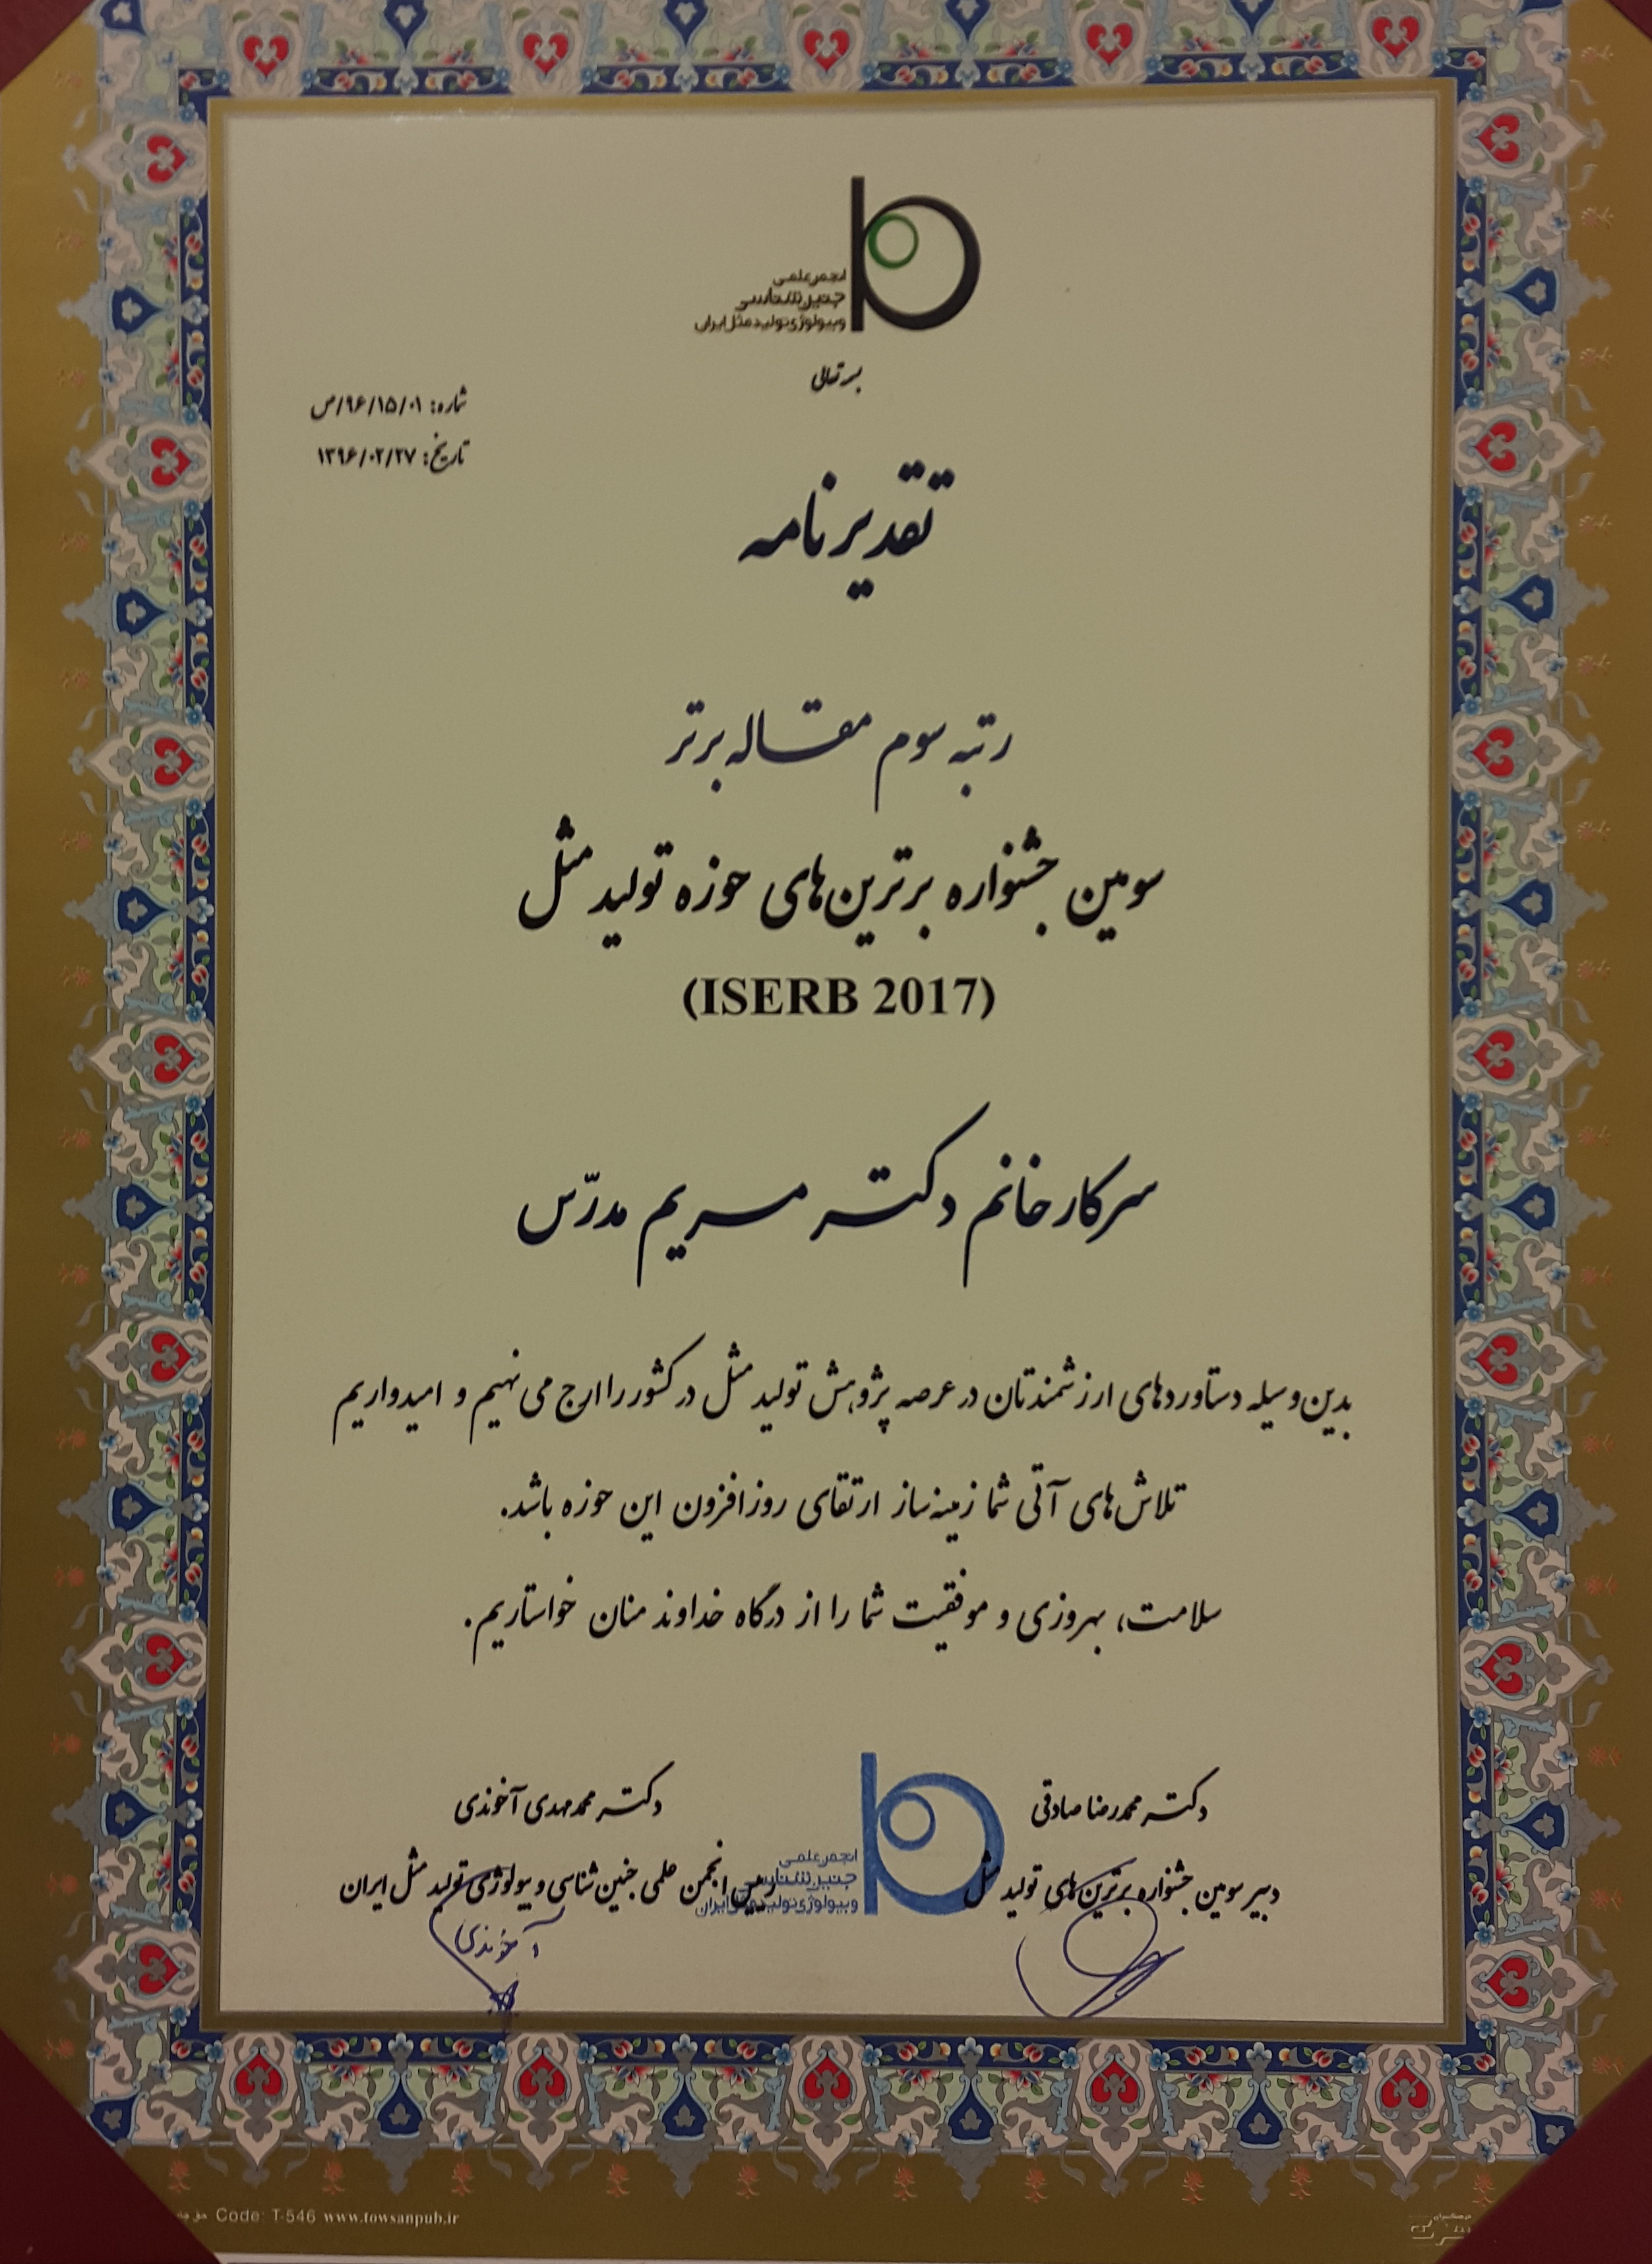 انجمن علمی
جنین‌شناسی
و بیولوژی تولید مثل ایران
بسمه تعالی
شماره: ۹۶/۱۵/۰۱/ص
تاریخ: ۱۳۹۶/۰۲/۲۷
تقدیرنامه
رتبه سوم مقاله برتر
سومین جشنواره برترین‌های حوزه تولید مثل
(ISERB 2017)
سرکار خانم دکتر مریم مدرّس
بدین‌وسیله دستاوردهای ارزشمندتان در عرصه پژوهش تولید مثل در کشور را ارج می نهیم و امیدواریم
تلاش‌های آتی شما زمینه‌ساز ارتقای روزافزون این حوزه باشد.
سلامت، بهروزی و موفقیت شما را از درگاه خداوند منان خواستاریم.
دکتر محمدرضا صادقی
دبیر سومین جشنواره برترین‌های تولید مثل
دکتر محمدمهدی آخوندی
رییس انجمن علمی جنین شناسی و بیولوژی تولید مثل ایران
انجمن علمی
جنین‌شناسی
و بیولوژی تولید مثل ایران
آخوندی
Code: T-546 www.towsanpub.ir